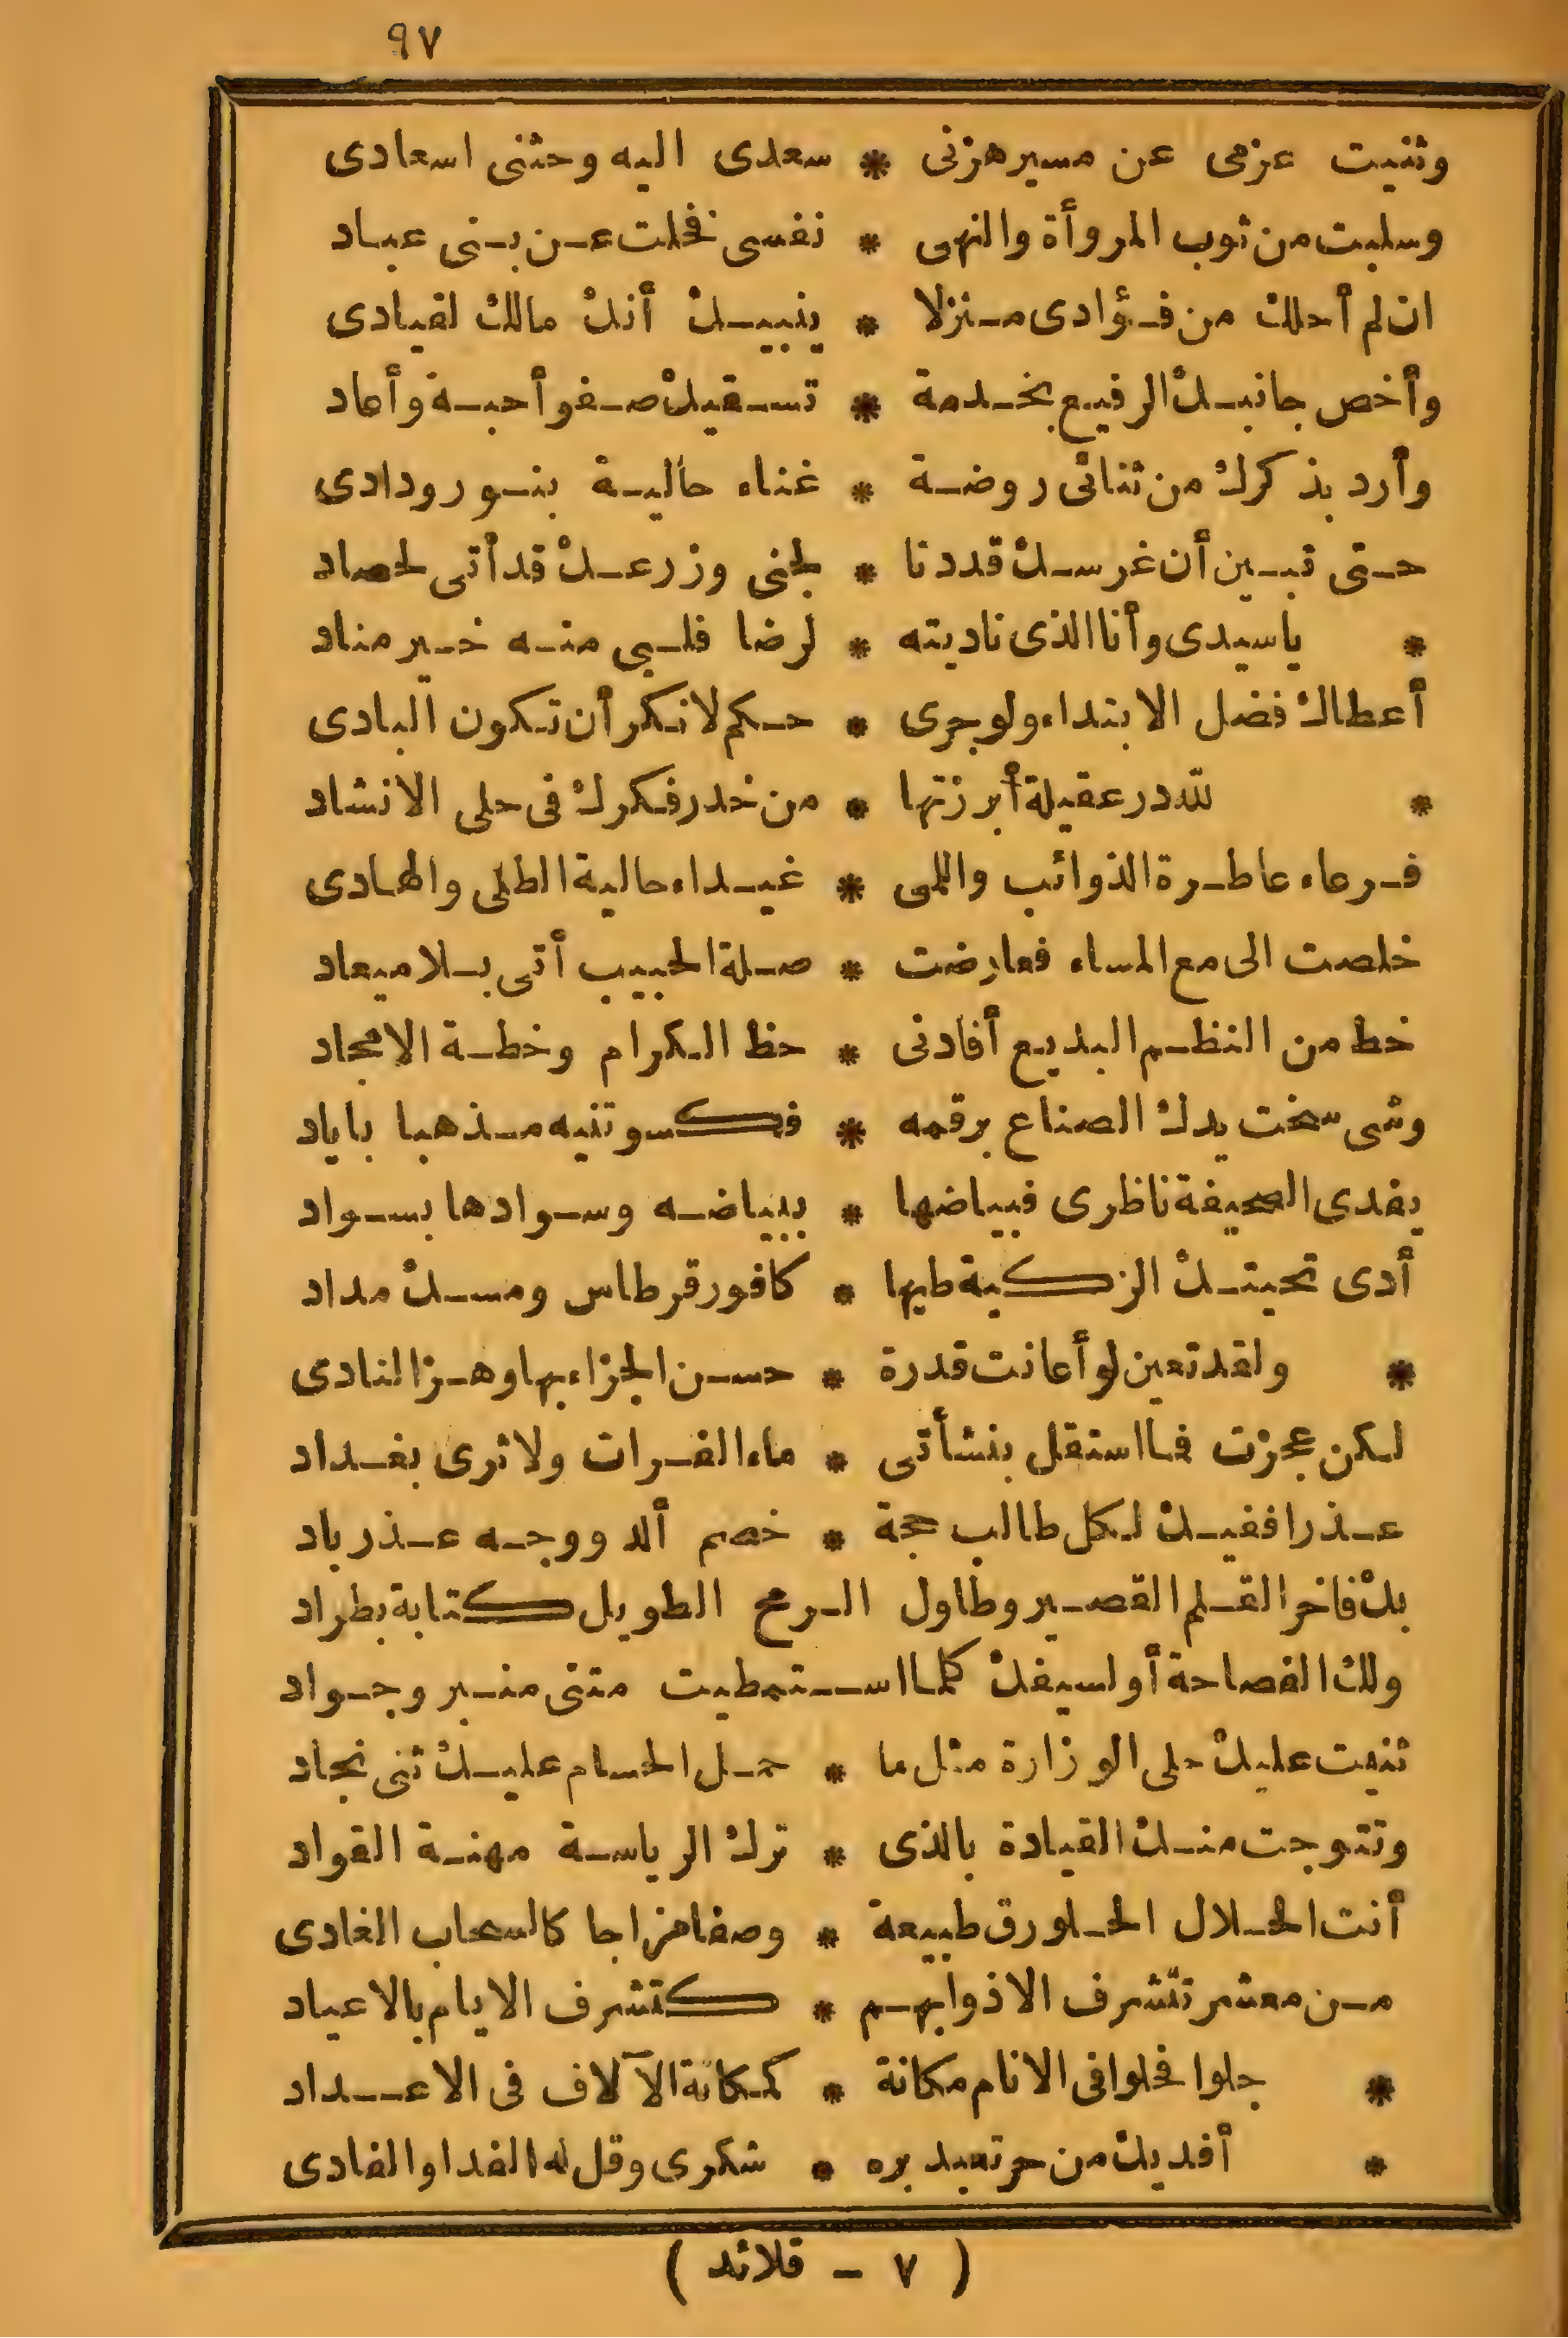 ٩٧
وثنيت عزمى عن مسير هزنى * سعدى اليه وحثنى اسعادى
وسلبت من ثوب المروأة والنهى * نفسى فخلت عن بنى عباد
ان لم أحلك من فؤادى منزلا * ينبيك أنك مالك لقيادى
وأخص جانبك الرفيع بخدمة * تسقيك صفو أحبة وأعاد
وأرد بذكرك من ثنائى روضة * غناء حالية بنور ودادى
حتى تبين أن غرسك قد دنا * لجنى وزرعك قد أتى لحصاد
* ياسيدى وأنا الذى ناديته * لرضا قلبى منه خير مناد
أعطاك فضل الابتداء ولو جرى * حكم لانكر أن تكون البادى
* لله در عقيلة أبرزتها * من خدر فكرك فى حلى الانشاد
فرعاء عاطرة الذوائب واللمى * غيداء حالية الطلى والهادى
خلصت الى مع المساء فعارضت * صلة الحبيب أتى بلا ميعاد
خط من النظم البديع أفادنى * حظ الكرام وخطة الامجاد
وشى سخت يدك الصناع برقمه * فكسوتنيه مذهبا باياد
يفدى الصحيفة ناظرى فبياضها * ببياضه وسوادها بسواد
أدى تحيتك الزكية طيها * كافور قرطاس ومسك مداد
* ولقد تعين لو أعانت قدرة * حسن الجزاء بها وهز النادى
لكن عجزت فما استقل بنشأتى * ماء الفرات ولا ثرى بغداد
عذرا ففيك لكل طالب حجة * خصم ألد ووجه عذر باد
بك فاخر القلم القصير وطاول الرمح الطويل كتابة بطراد
ولك الفصاحة أو لسيفك كلما استمطيت متنى منبر وجواد
ثنيت عليك حلى الوزارة مثل ما * حمل الحسام عليك ثنى نجاد
وتتوجت منك القيادة بالذى * ترك الرياسة مهنة القواد
أنت الحلال الحلو رق طبيعة * وصفا مزاجا كالسحاب الغادى
من معشر تتشرف الاذوا بهم * كتشرف الايام بالاعياد
* جلوا فحلوا فى الانام مكانة * كمكانة الآلاف فى الاعداد
* أفديك من حر تعبد بره * شكرى وقل له الفدا والفادى
( ٧ – قلائد )